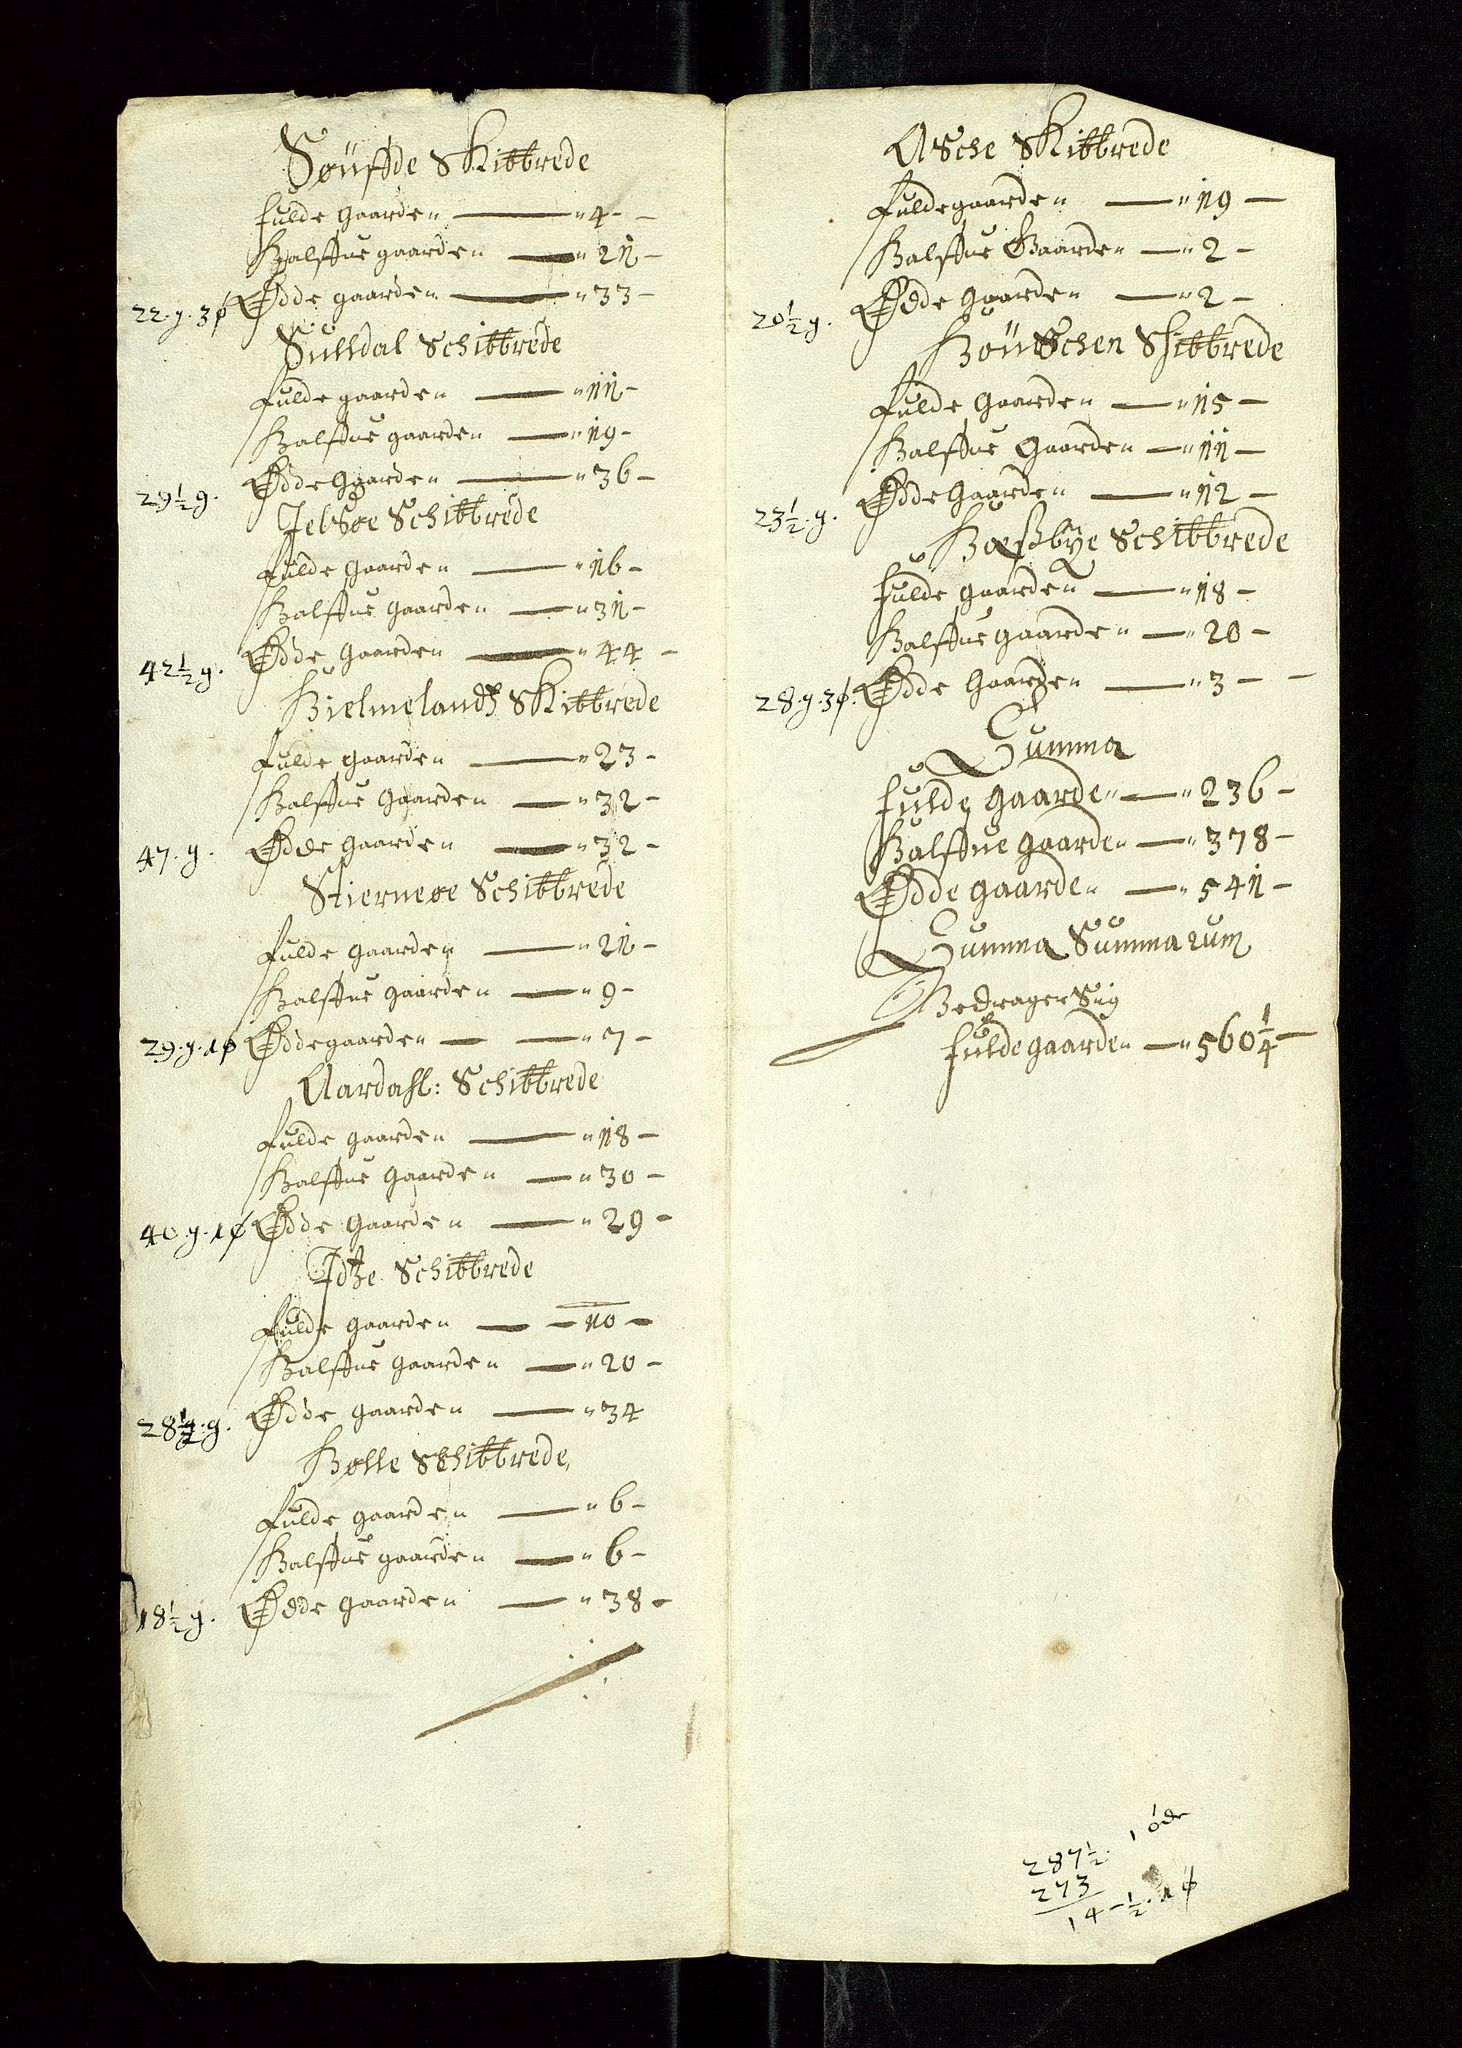 Søüffde Skibbrede
fulde gaarden — 4 -
Halffue gaarden — 21 -
22. g. 3ø Ødde gaarden — 33 -
Sülldal Schibbrede
fulde gaarden — 11 -
Halffue gaarden — 19 -
29½ g. Ødde Gaarden — 36 -
Jelsøe Schibbrede
fulde Gaarden — 16 -
Halffue Gaarden — 31 -
42½ g. Ødde Gaarden — 44 -
Hielmelandz Skibbrede
fulde gaarden — 23 -
Halffue Gaarden — 32 -
47. g. Ødde Gaarden — 32 -
Stierneøe Schibbrede
fulde Gaarden — 21 -
Halffue Gaarden — 9 -
29. g. 1ø Øddegaarden — 7 -
Aardahl: Schibbrede
fulde gaarden — 18 -
Halffue Gaarden — 30 -
40. g. 1ø Ødde Gaarden — 29 -
Idtze Schibbrede
fulde gaarden — 10 -
Halffue gaarden — 20 -
28½ g. Ødde gaarden — 34
Holle Schibbrede
fulde gaarden — 6 -
Halffue gaarden — 6 -
18½ g. Ødde gaarden — 38 -
Asche Skibbrede
fuldegaarden — 19 -
Halffue Gaarden — 2 -
20½ g. Øde Gaarden — 2 -
Schibbrede
fulde Gaarden — 15 -
Halffue Gaarden — 11 -
23½. g. Ødde Gaarden — 12 -
Hæssbye Schibbrede
fulde gaarden — 18 -
Halffue gaarden — 20 -
28. g. 3ø. Ødde Gaarden — 3 -
Summa
fulde gaarden — 236 -
Halffue gaarden — 378 -
Ødde gaarden — 541 -
Summa Summarum
Bedrager Sig
fuldegaarden — 560¼ -
1 øde
287½.
273
14 - ½. 1ø